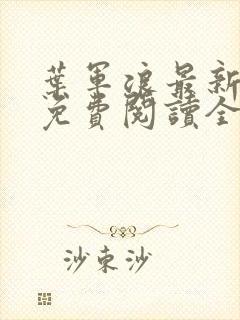 葉軍浪最新
免費閱讀全
沙東沙